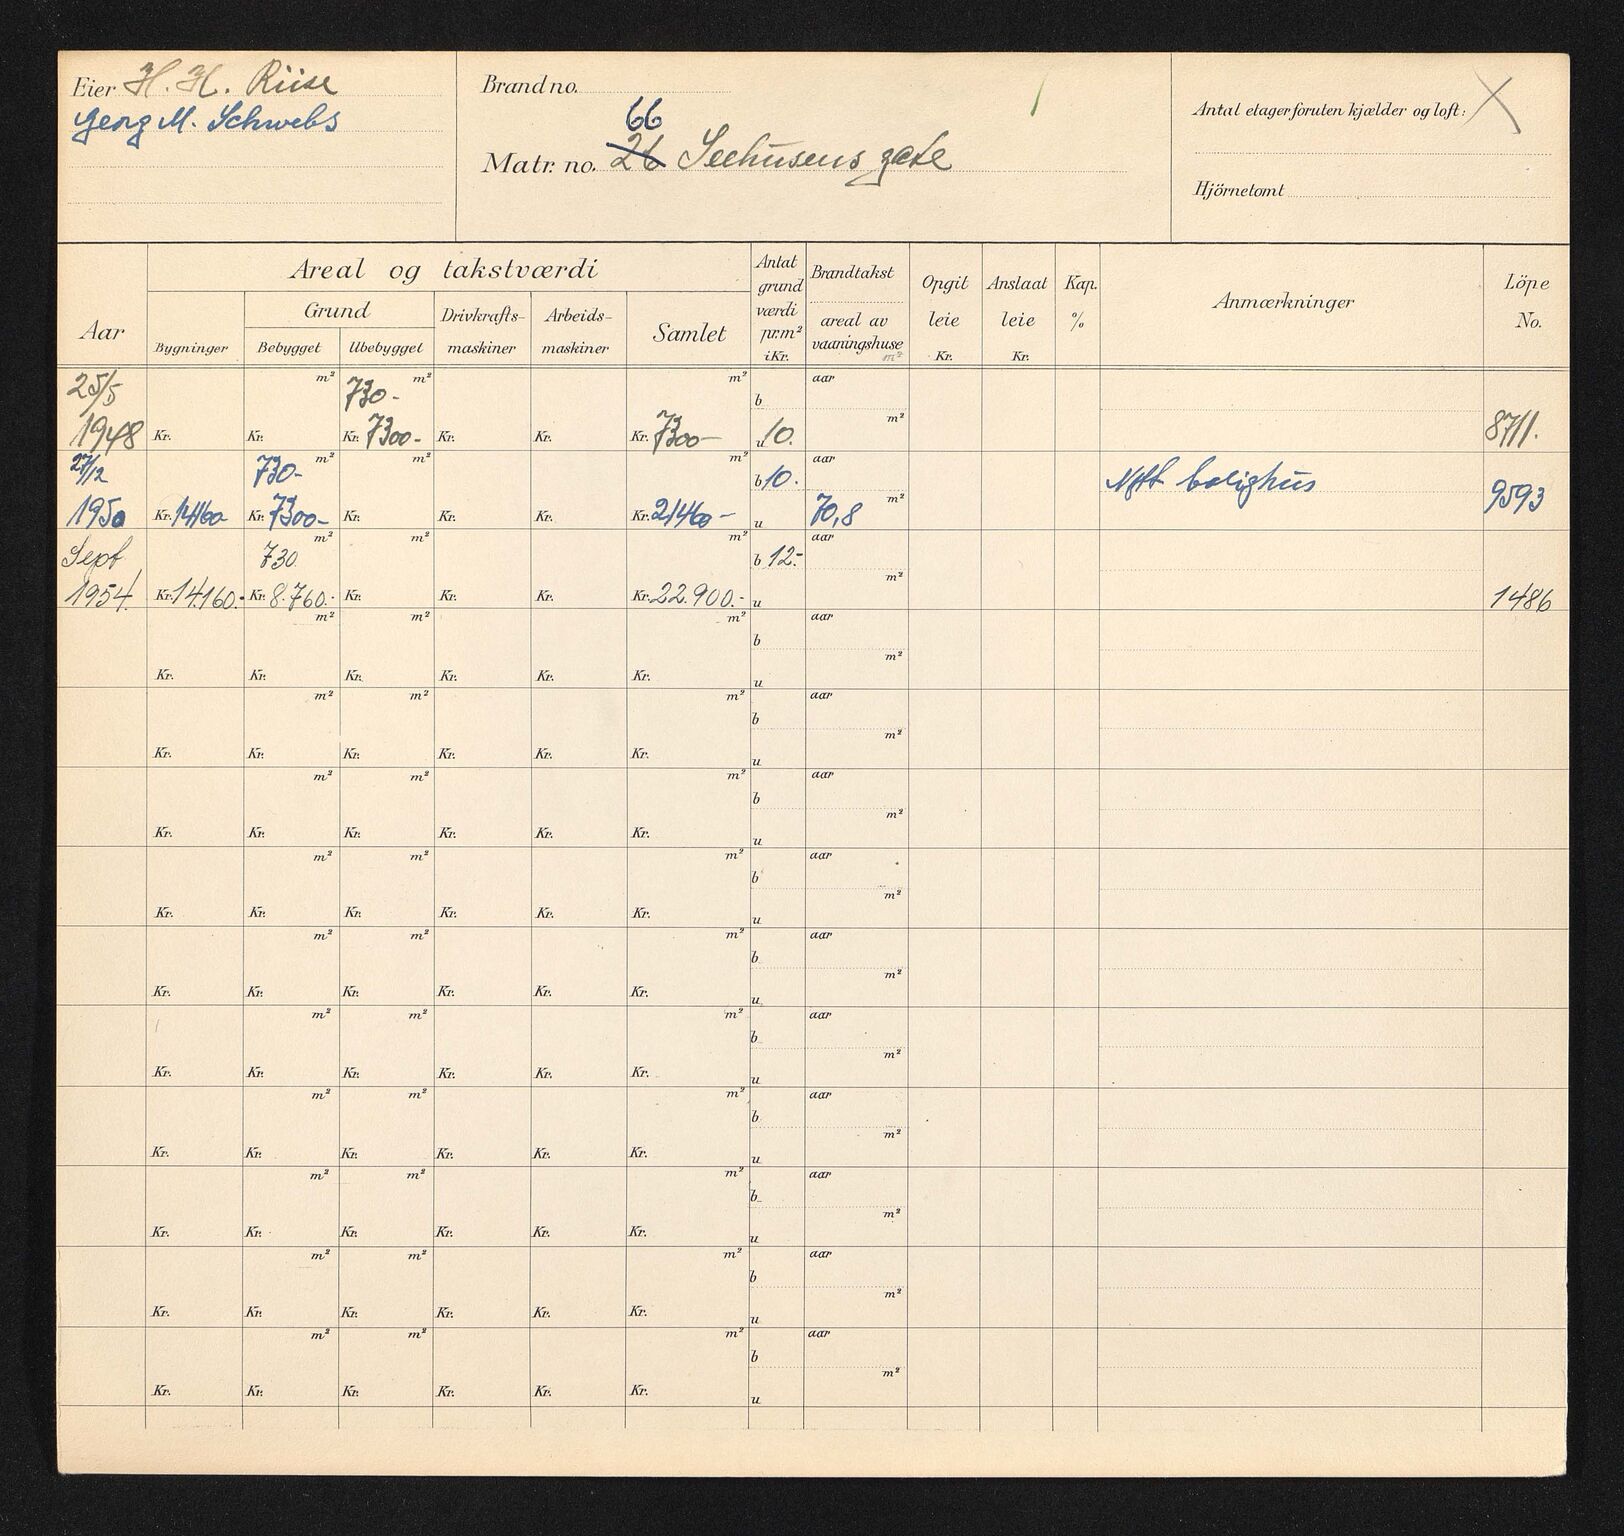 Eier H. H. Riise
Georg M. Schwebs
Brand no.
66
Matr. no. 26 Seehusens gate
Antal etager foruten kjælder og loft: X
Hjörnetomt
Aar
Areal og takstværdi
Bygninger
Grund
Bebygget Ubebygget
Drivkrafts-
maskiner
Arbeids-
maskiner
Samlet
Antat
grund
værdi
pr.m²
i Kr.
Brandtakst
areal av
vaaningshuse
m²
Opgit
leie
Kr.
Anslaat
leie
Kr.
Kap.
%
Anmærkninger
Löpe
No.
25/5 m² 730.- m² m² b aar
1948 Kr. Kr. Kr. 7300.- Kr. Kr. Kr. 7300- u 10. m² 8711.
27/12 730- m² m² m² b 10. aar Nytt bolighus
1950 Kr. 14160 Kr. 7300- Kr. Kr. Kr. Kr. 21460- u 70,8 m² 9593
Sept 730 m² m² m² b 12.- aar
1954. Kr. 14.160.- Kr. 8.760.- Kr. Kr. Kr. Kr. 22.900.- u m² 1486
m² m² m² b aar
Kr. Kr. Kr. Kr. Kr. Kr. u m²
m² m² m² b aar
Kr. Kr. Kr. Kr. Kr. Kr. u m²
m² m² m² b aar
Kr. Kr. Kr. Kr. Kr. Kr. u m²
m² m² m² b aar
Kr. Kr. Kr. Kr. Kr. Kr. u m²
m² m² m² b aar
Kr. Kr. Kr. Kr. Kr. Kr. u m²
m² m² m² b aar
Kr. Kr. Kr. Kr. Kr. Kr. u m²
m² m² m² b aar
Kr. Kr. Kr. Kr. Kr. Kr. u m²
m² m² m² b aar
Kr. Kr. Kr. Kr. Kr. Kr. u m²
m² m² m² b aar
Kr. Kr. Kr. Kr. Kr. Kr. u m²
m² m² m² b aar
Kr. Kr. Kr. Kr. Kr. Kr. u m²